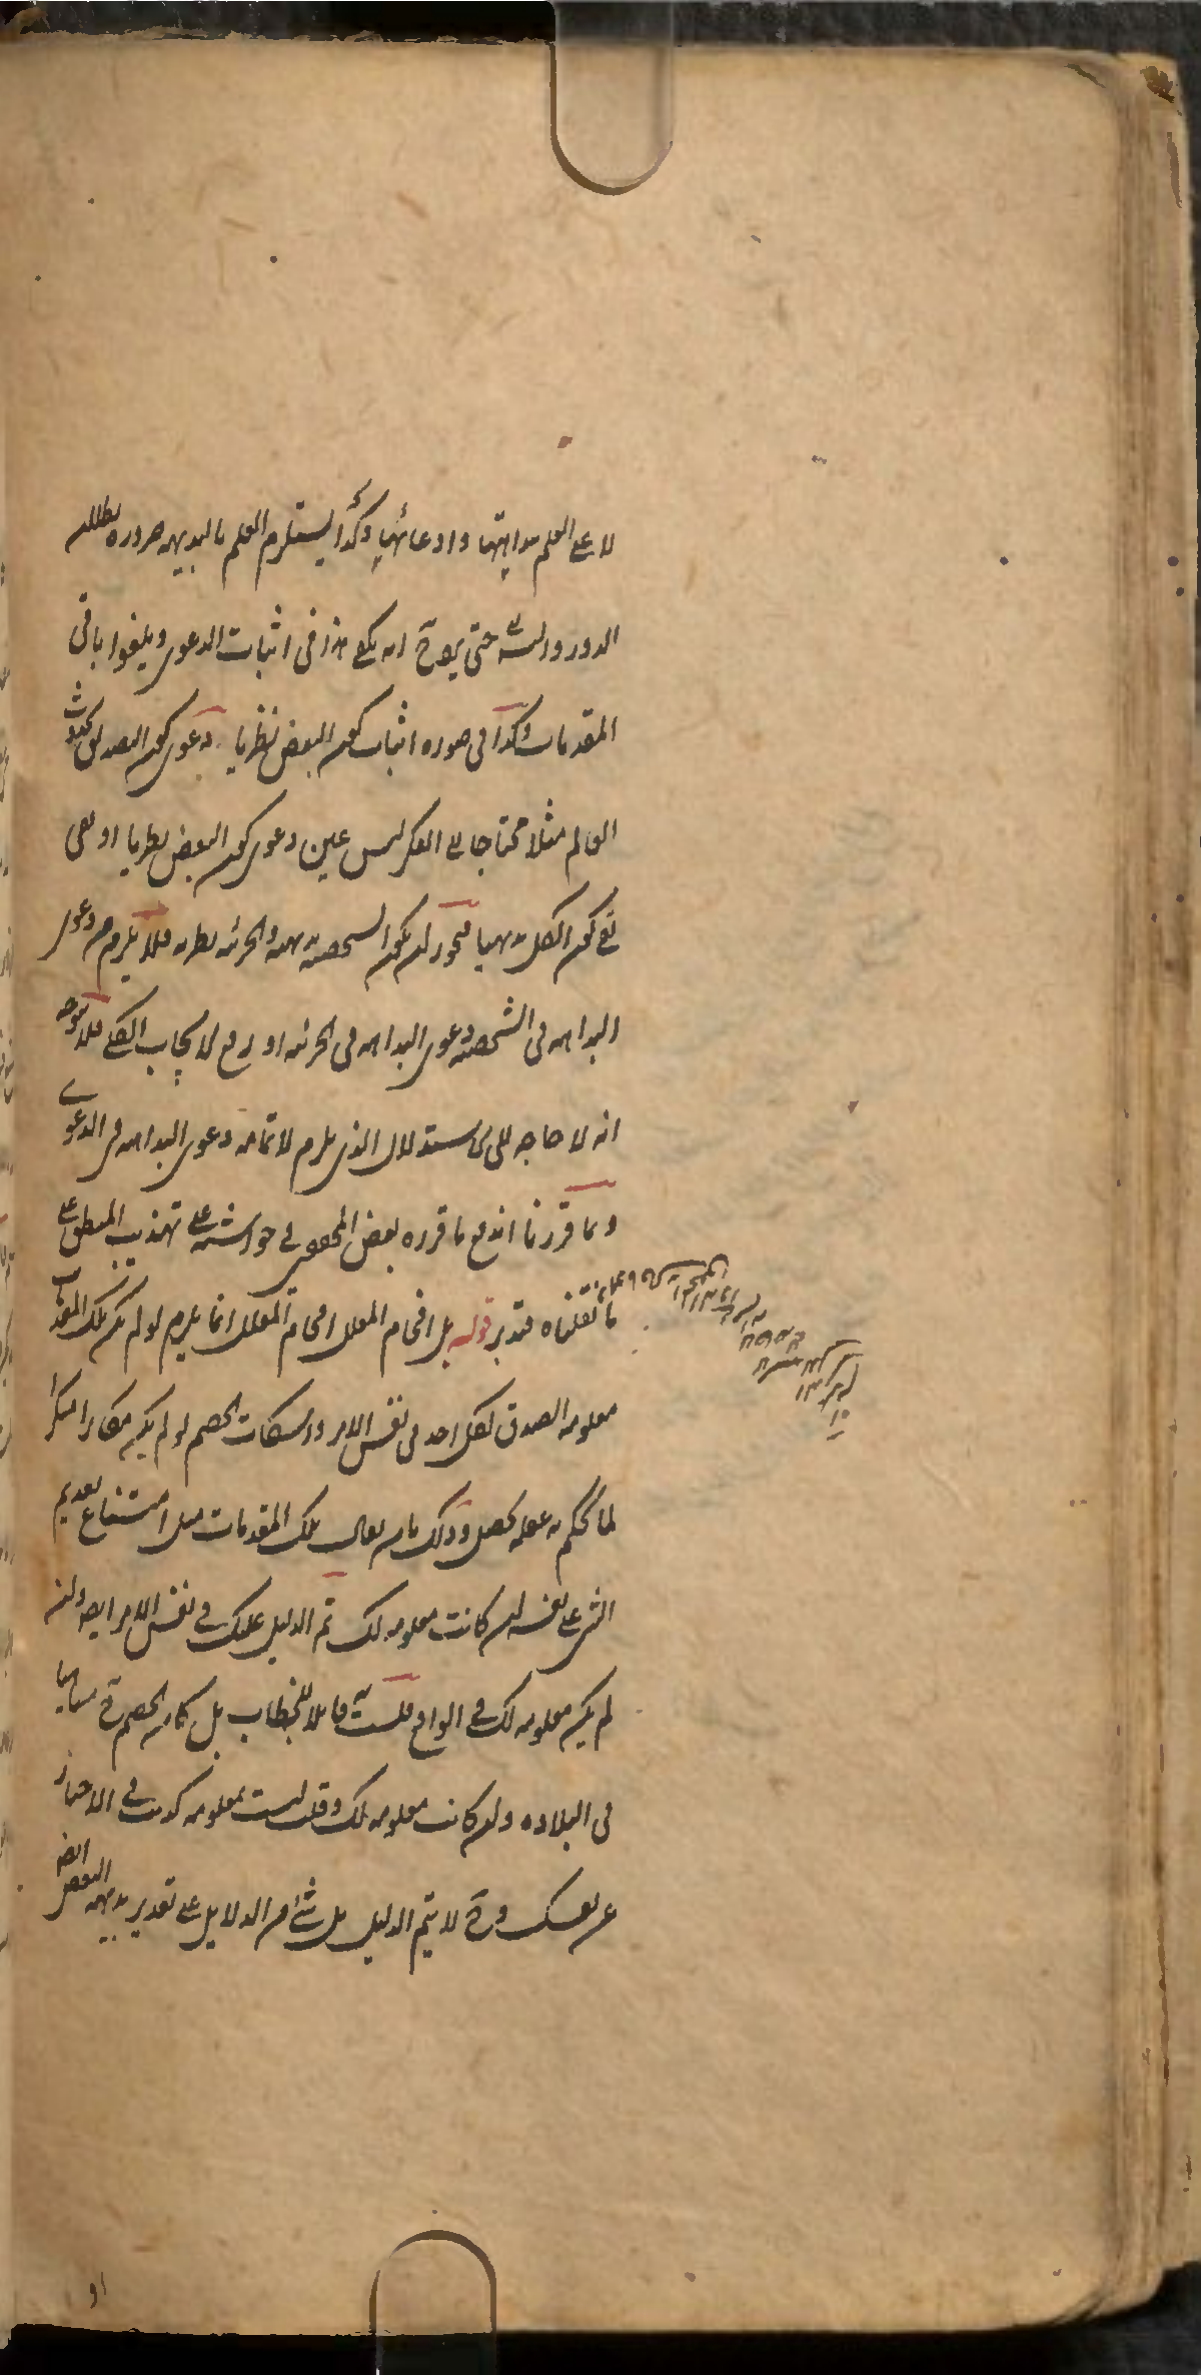 لا على العلم بداهتها وادعائها وكذا يستلزم العلم بالبديهية ضرورة بطلان
الدور والتسـ حتى يتوجه ان يكفي هذا في اثبات الدعوى ويلغوا باقي
المقدمات وكذا في صورة اثبات كون البعض نظريا دعوى كون التصديق بحدوث
العالم مثلا محتاجا الى الفكر ليس عين دعوى كون البعض نظريا او نفي
كون الكل بديهيا فيجوز ان يكون الشخصية بديهية والجزئية نظرية فلا يلزم من دعوى
البداهة في الشخصية دعوى البداهة في الجزئية او رفع الايجاب الكلي فلا يتوجه
انه لا حاجة الى الاستدلال الذي يلزم لاتمامه دعوى البداهة في الدعوى
وبما قررنا اندفع ما قرره بعض المحققين في حواشيه على تهذيب المنطق على
ما نقلناه فتدبر قوله بل افحام المعلل افحام المعلل انما يلزم لو لم يكن تلك المقدمات
معلومة الصدق لكل احد في نفس الامر واسكات الخصم لو لم يكن مكابرا منكرا
لما يحكم به عقله يحصل وذلك بان يقال تلك المقدمات مثل امتناع تقديم
الشئ على نفسه ان كانت معلومة لك تم الدليل عليك في نفس الامر ايضا وان
لم يكن معلومة لك في الواقع فلست قابلا للخطاب بل كان الخصم ح متناهيا
في البلادة وان كانت معلومة لك وقلت ليست بمعلومة كذبت في الاخبار
عن نفسك و ح لا يتم الدليل بل شئ من الدلايل على تقدير بديهية البعض ايضا
او